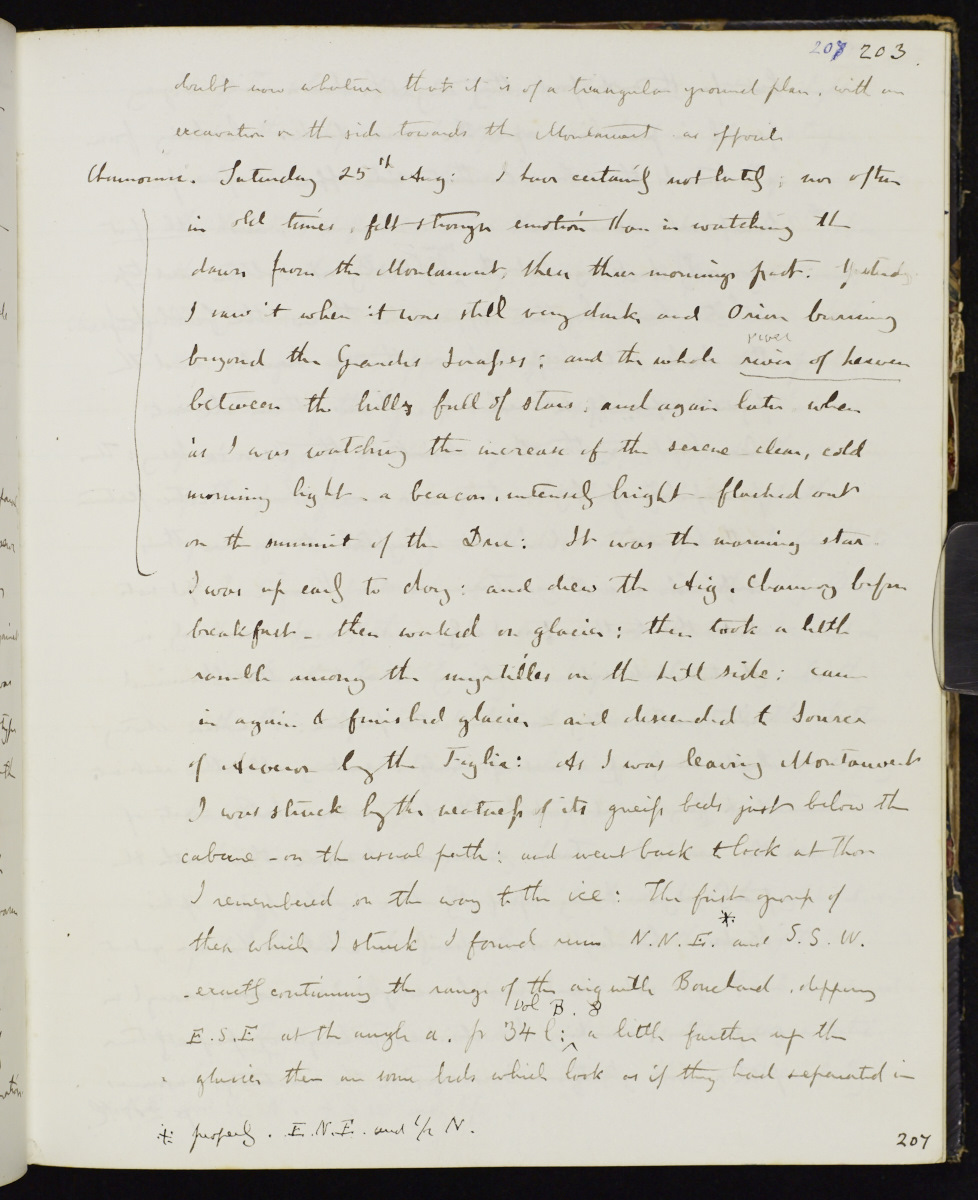 207 203.
doubt now whatever that it is of a triangular ground plan, with an
excavation on the side towards the Montanvert as opposite
Chamouni. Saturday 25th Aug: I have certainly not lately; nor often
in old times, felt stronger emotion than in watching the
dawn from the Montanvert, these three mornings past. Yesterday
I saw it when it was still very dark and Orion burning
river
beyond the Grandes Jorasses; and the whole river of heaven
between the hills full of stars, and again later when
as I was watching the increase of the serene clear, cold
morning light - a beacon, intensely bright - flashed out
on the summit of the Dru: It was the morning star.
I was up early to day: and drew the Aig. Charmoz before
breakfast - then worked on glacier; then took a little
ramble among the myrtilles on the hill side; came
in again & finished glacier and descended to Source
of Arveron by the Filia: As I was leaving Montanvert
I was struck by the neatness of its gneiss beds just below the
cabane - on the usual path; and went back to look at those
I remembered on the way to the ice: The first group of
these which I struck I found runs N.N.E.* and S.S.W.
- exactly continuing the range of the aiguille Bouchard, dipping
vol B. 8
E.S.E at the angle a. p 34 l; a little further up the
glacier there are some beds which look as if they had separated in
* properly. E.N.E. and 1/2 N.
207